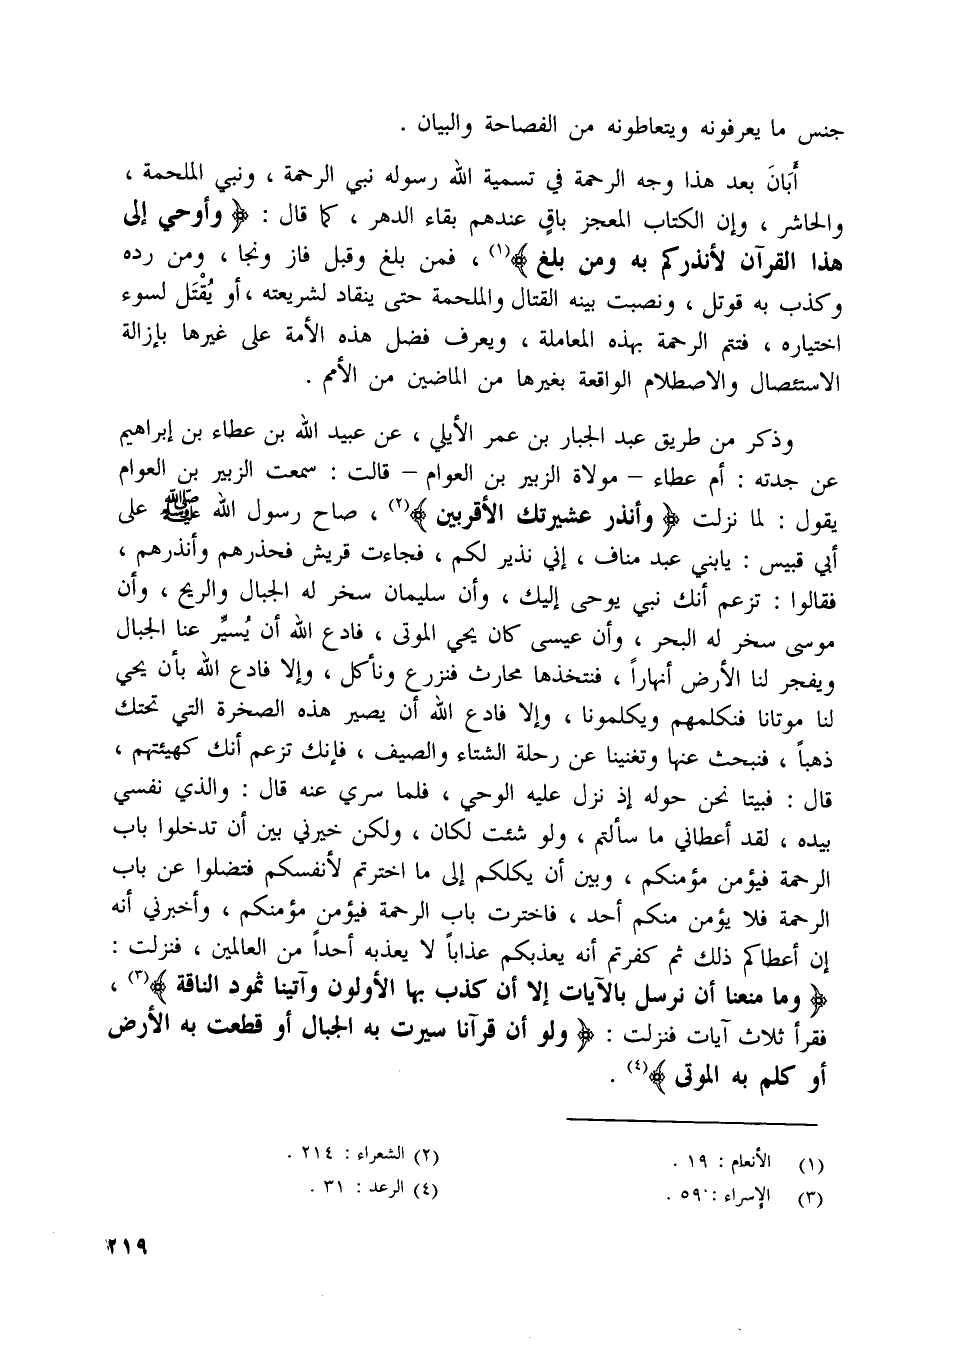 جنس ما يعرفونه ويتعاطونه من الفصاحة والبيان .
أَبَانَ بعد هذا وجه الرحمة في تسمية الله رسوله نبي الرحمة ، ونبي الملحمة ،
والحاشر ، وإن الكتاب المعجز باقٍ عندهم بقاء الدهر ، كما قال : ﴿ وأوحي إلى
هذا القرآن لأنذركم به ومن بلغ ﴾(١) ، فمن بلغ وقبل فاز ونجا ، ومن رده
وكذب به قوتل ، ونصبت بينه القتال والملحمة حتى ينقاد لشريعته ، أو يُقْتَل لسوء
اختياره ، فتتم الرحمة بهذه المعاملة ، ويعرف فضل هذه الأمة على غيرها بإزالة
الاستئصال والاصطلام الواقعة بغيرها من الماضين من الأمم .
وذكر من طريق عبد الجبار بن عمر الأيلي ، عن عبيد الله بن عطاء بن إبراهيم
عن جدته : أم عطاء – مولاة الزبير بن العوام – قالت : سمعت الزبير بن العوام
يقول : لما نزلت ﴿ وأنذر عشيرتك الأقربين ﴾(٢) ، صاح رسول الله ﷺ على
أبي قبيس : يابني عبد مناف ، إني نذير لكم ، فجاءت قريش فحذرهم وأنذرهم ،
فقالوا : تزعم أنك نبي يوحى إليك ، وأن سليمان سخر له الجبال والريح ، وأن
موسى سخر له البحر ، وأن عيسى كان يحي الموتى ، فادع الله أن يُسيِّر عنا الجبال
ويفجر لنا الأرض أنهاراً ، فنتخذها محارث فنزرع ونأكل ، وإلا فادع الله بأن يحي
لنا موتانا فنكلمهم ويكلمونا ، وإلا فادع الله أن يصير هذه الصخرة التي تحتك
ذهباً ، فنبحث عنها وتغنينا عن رحلة الشتاء والصيف ، فإنك تزعم أنك كهيئتهم ،
قال : فبيتا نحن حوله إذ نزل عليه الوحي ، فلما سري عنه قال : والذي نفسي
بيده ، لقد أعطاني ما سألتم ، ولو شئت لكان ، ولكن خيرني بين أن تدخلوا باب
الرحمة فيؤمن مؤمنكم ، وبين أن يكلكم إلى ما اخترتم لأنفسكم فتضلوا عن باب
الرحمة فلا يؤمن منكم أحد ، فاخترت باب الرحمة فيؤمن مؤمنكم ، وأخبرني أنه
إن أعطاكم ذلك ثم كفرتم أنه يعذبكم عذاباً لا يعذبه أحداً من العالمين ، فنزلت :
﴿ وما منعنا أن نرسل بالآيات إلا أن كذب بها الأولون وآتينا ثمود الناقة ﴾(٣) ،
فقرأ ثلاث آيات فنزلت : ﴿ ولو أن قرآنا سيرت به الجبال أو قطعت به الأرض
أو كلم به الموتى ﴾(٤) .
(١) الأنعام : ١٩ .
(٢) الشعراء : ٢١٤ .
(٣) الإسراء : ٥٩ .
(٤) الرعد : ٣١ .
٢١٩